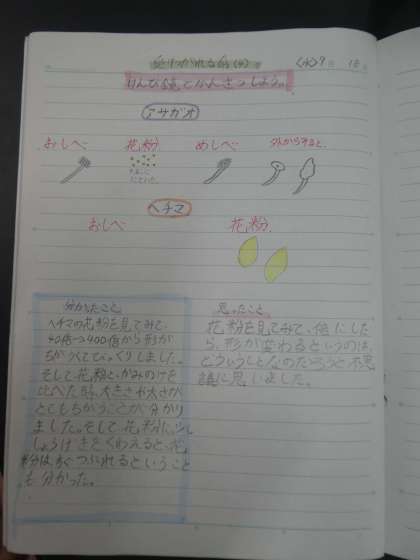 受けつがれる命(4)
(水)9 16
けんび鏡でかんさつしよう。
アサガオ
おしべ 花粉 めしべ 外からすると、
ヘチマ
おしべ 花粉
分かったこと
ヘチマの花粉を見てみて、
40倍→400倍から形が
ちがくてびっくりしました。
そして花粉と、かみのけを
比べたら、大きさや太さが
とてもちがうことが分かり
ました。そして花粉に、少し
しょうげきをくわえると、花
粉は、すぐつぶれるということ
も分かった。
思ったこと
花粉を見てみて、倍にした
ら、形が変わるというのは、
どういうことなのだろうと不思
議に思いました。